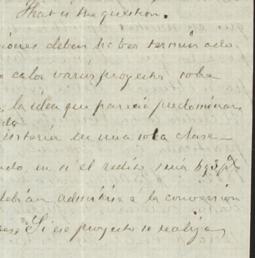 That is the question.
iones deben haber terminado
calor varios proyectos sobre
la idea que parecia predominar
do
istoria en una sola clase
ado en si el redito será 6 ó 3 p%
debian admitirse á la conversion
Si ese proyecto se realiza